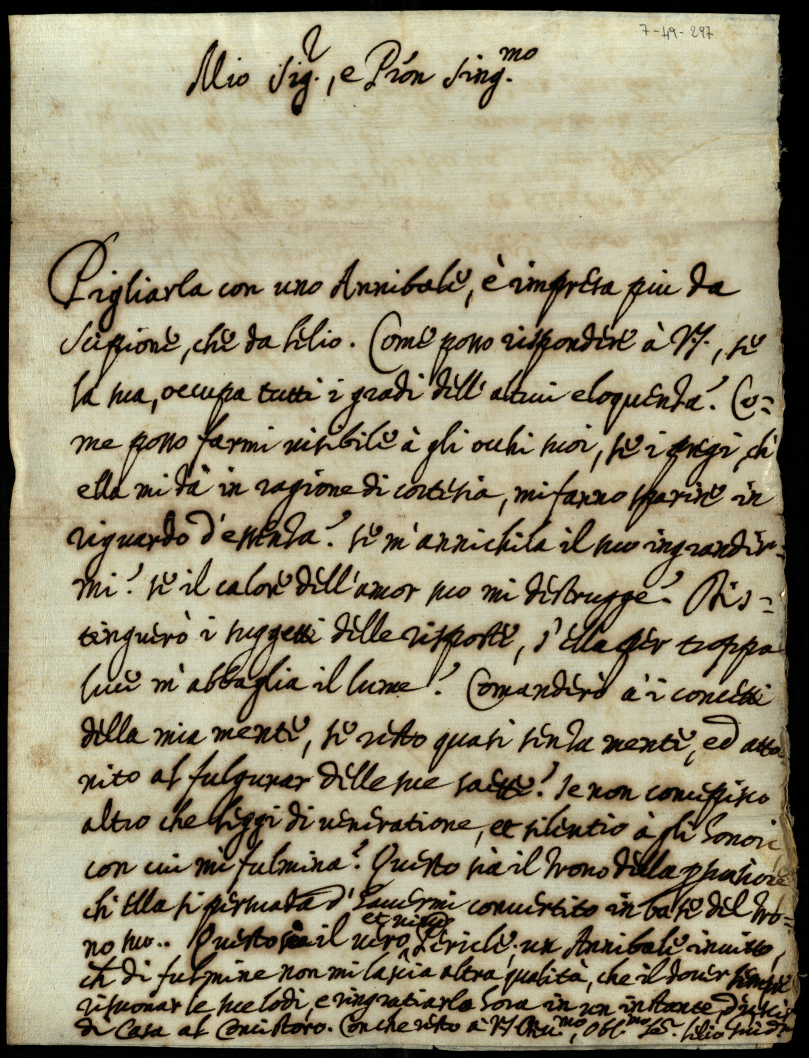 7-49-297
Mio Sig.r, e Prón Sing.mo
Pigliarla con uno Annibale, è impresa piu da
Scipione, che da Lelio. Come posso rispondere à V.S., se
la sua, occupa tutti i gradi dell'altrui eloquenza? Co=
me posso farmi visibile à gli occhi suoi, se i pregi, ch'
ella mi dà in ragione di cortesia, mi fanno sparire in
riguardo d'essenza? se m'annichila il suo ingrandir=
mi? se il calore dell'amor suo mi distrugge? Dis=
tinguerò i suggetti delle risposte, s'ella per troppa
luce m'abbaglia il lume? Comanderò à i concetti
della mia mente, se resto quasi senza mente, ed atto
nito al fulgurar delle sue saette? Se non concepisco
altro che leggi di veneratione, et silentio à gli honori
con cui mi fulmina? Questo sia il trono della
ch'Ella si persuada d'havermi convertito in base del tro=
no suo.. Questo sia il vero, et Pericle. un Annibale invitto,
ch di fulmine non mi lascia altra qualita, che il dover sempre
risuonar le sue lodi, e ringratiarla hora in un instante
di Casa al Concistoro. Con che resto à V.S. mo, Obl.mo Se.